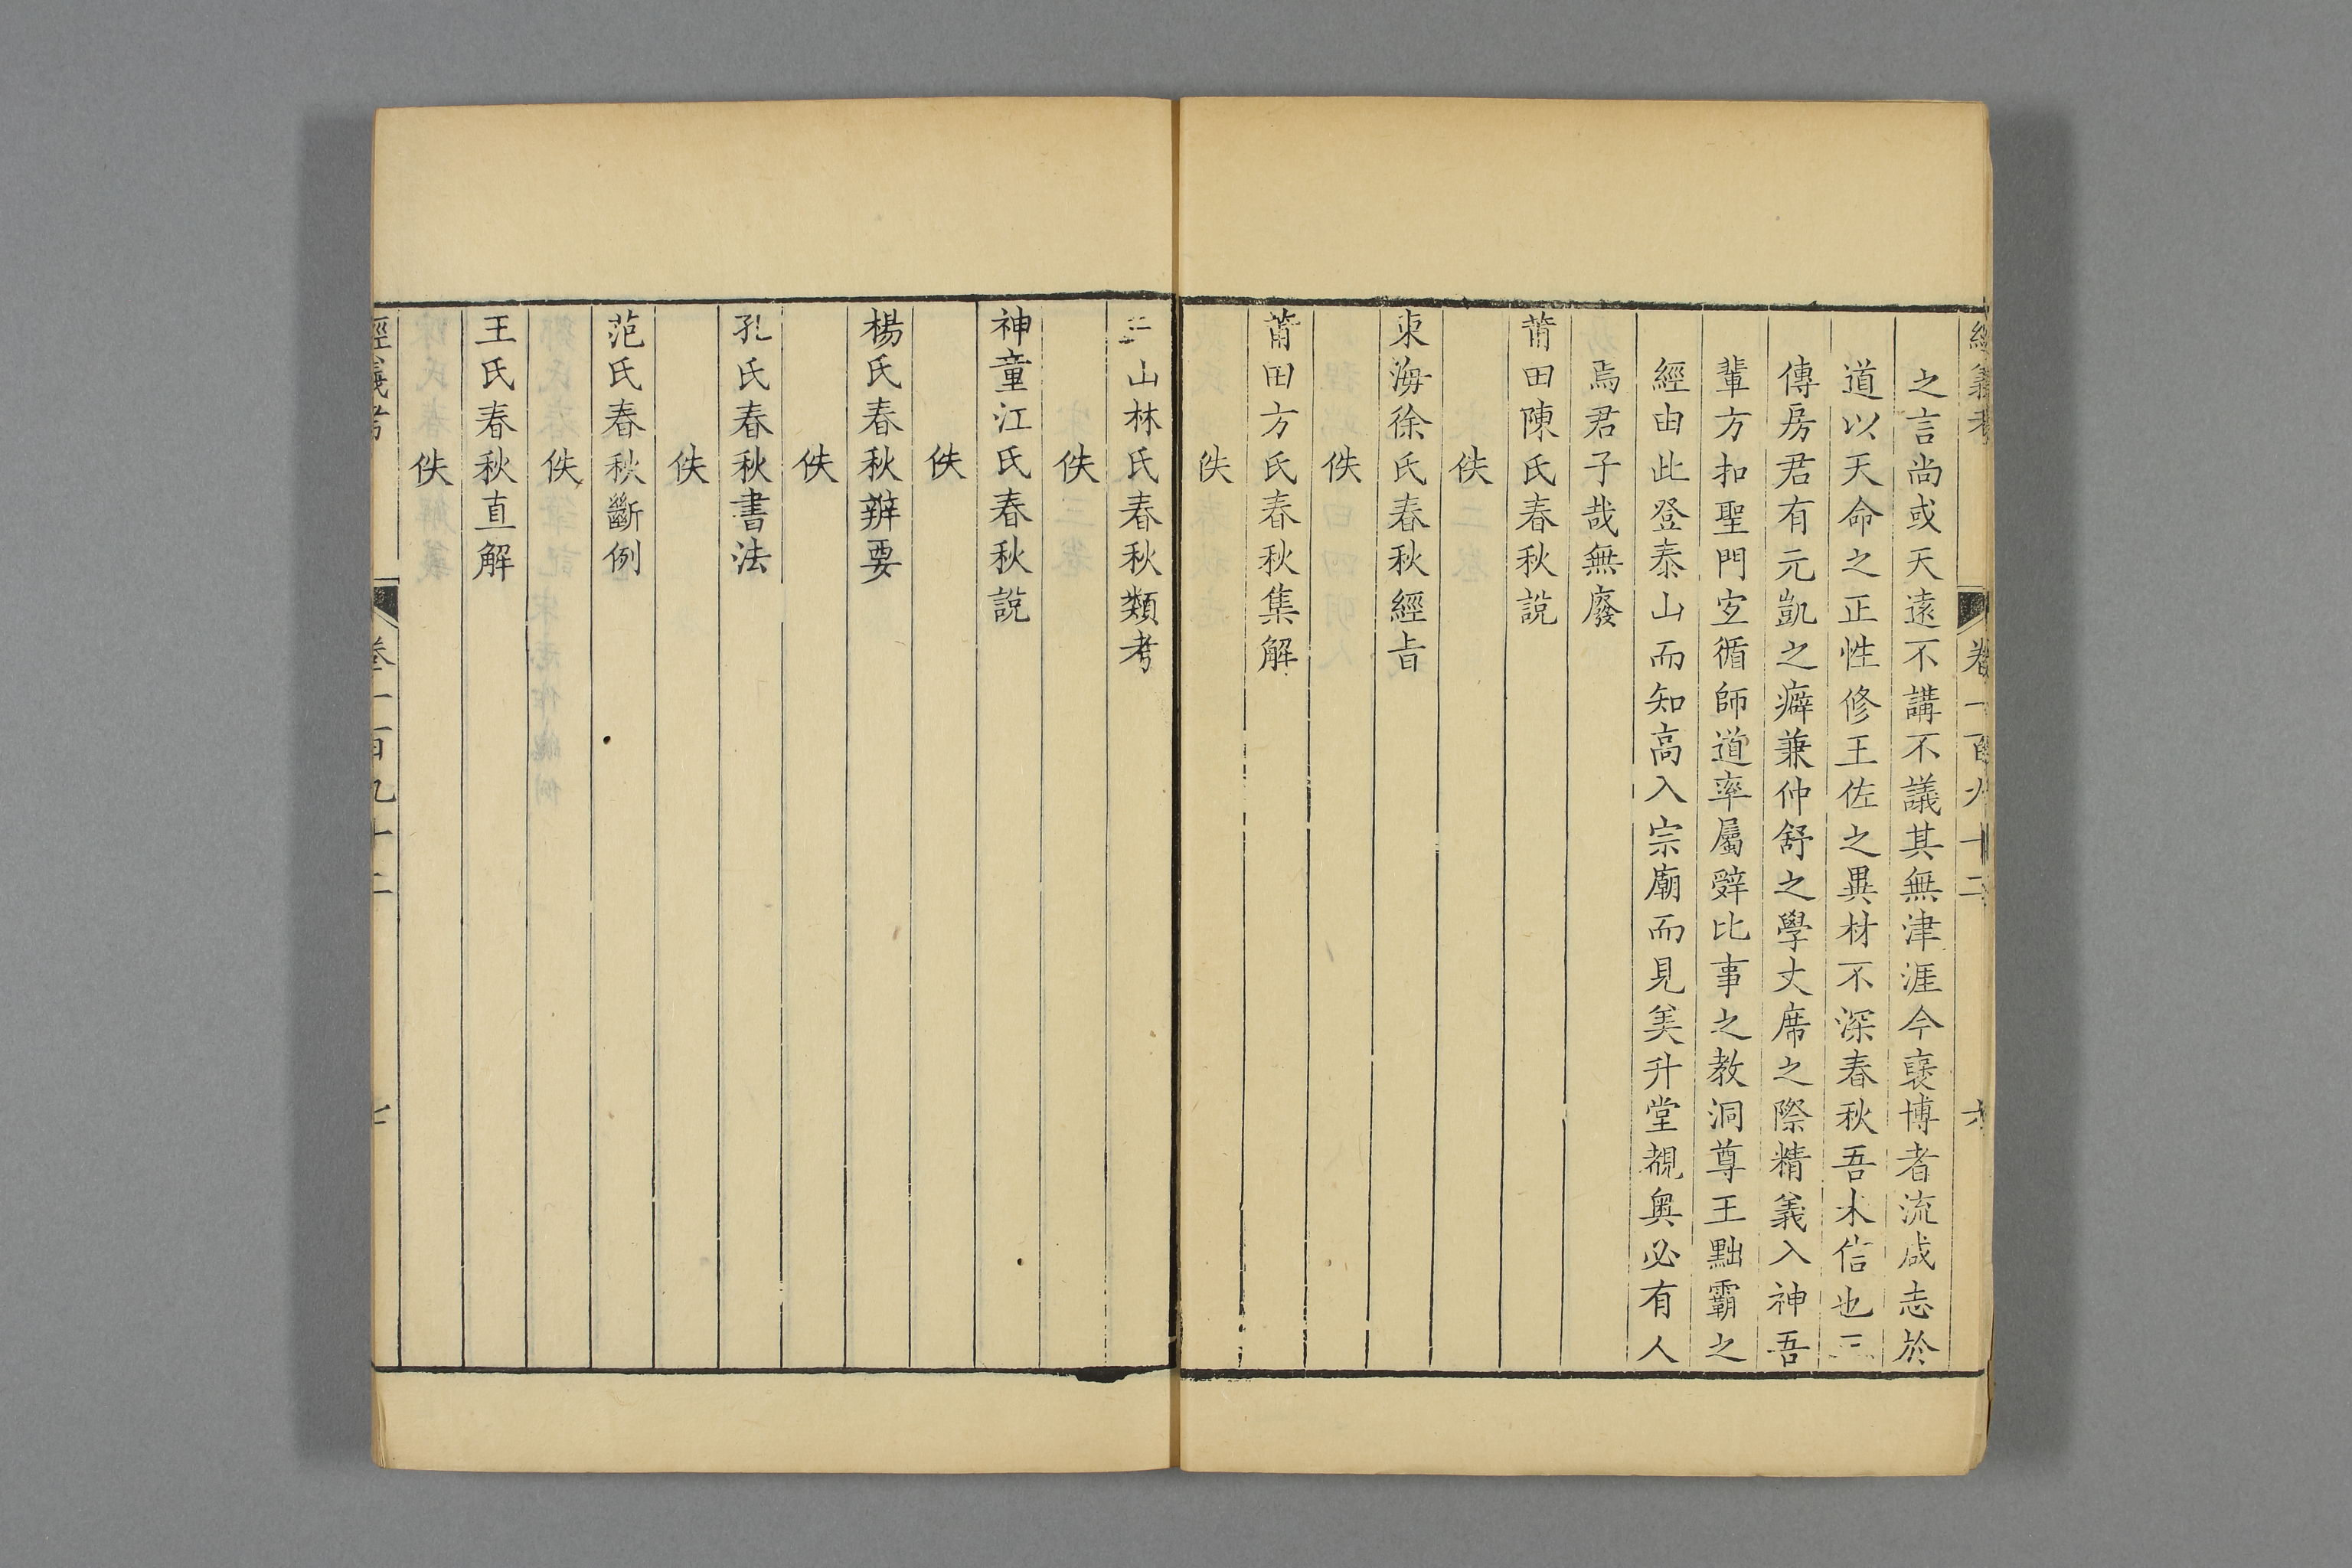 經義考 卷一百九十二 六
之言尚或天遠不講不議其無津涯今裒博者流咸志於
道以天命之正性修王佐之異材不深春秋吾未信也三
傳房君有元凱之癖兼仲舒之學丈席之際精義入神吾
輩方扣聖門宜循師道率屬辭比事之教洞尊王黜霸之
經由此登泰山而知高入宗廟而見美升堂覩奥必有人
焉君子哉無廢
莆田陳氏春秋說
佚
東海徐氏春秋經旨
佚
莆田方氏春秋集解
佚
三山林氏春秋類考
佚
神童江氏春秋說
佚
楊氏春秋辨要
佚
孔氏春秋書法
佚
范氏春秋斷例
佚
王氏春秋直解
佚
經義考 卷一百九十二 七